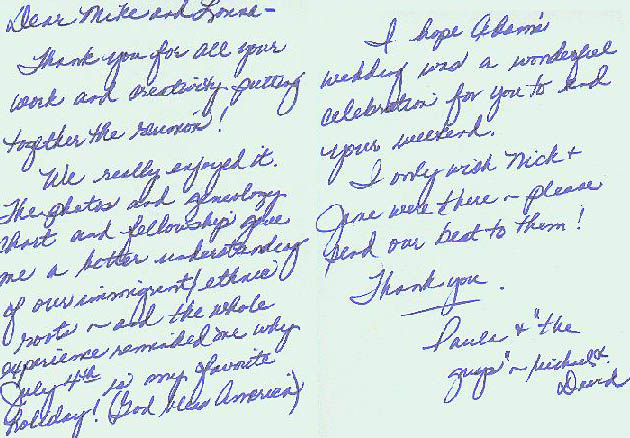 Dear Mike and Lonna -
Thank you for all your
work and creativity putting
together the reunion!
We really enjoyed it.
The photos and geneology
chart and fellowship gave
me a better understanding
of our immigrant/ethnic
roots ~ and the whole
experience reminded me why
July 4th is my favorite
holiday! (God bless America)
I hope Adam's
wedding was a wonderful
celebration for you to end
your weekend.
I only wish Nick +
Jane were there ~ please
send our best to them!
Thank you.
Paula & "the
guys" ~ Michael &
David